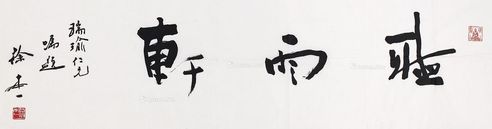 聽雨軒
瑞瑜仁兄
嘱题
徐本一